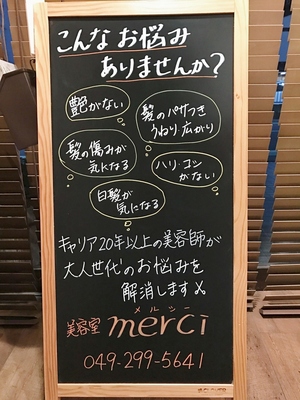 こんなお悩み
ありませんか?
艶がない
髪のパサつき
うねり・広がり
髪の傷みが
気になる
ハリ・コシ
がない
白髪が
気になる
キャリア20年以上の美容師が
大人世代のお悩みを
解消します
メルシー
美容室 merci
049-299-5641